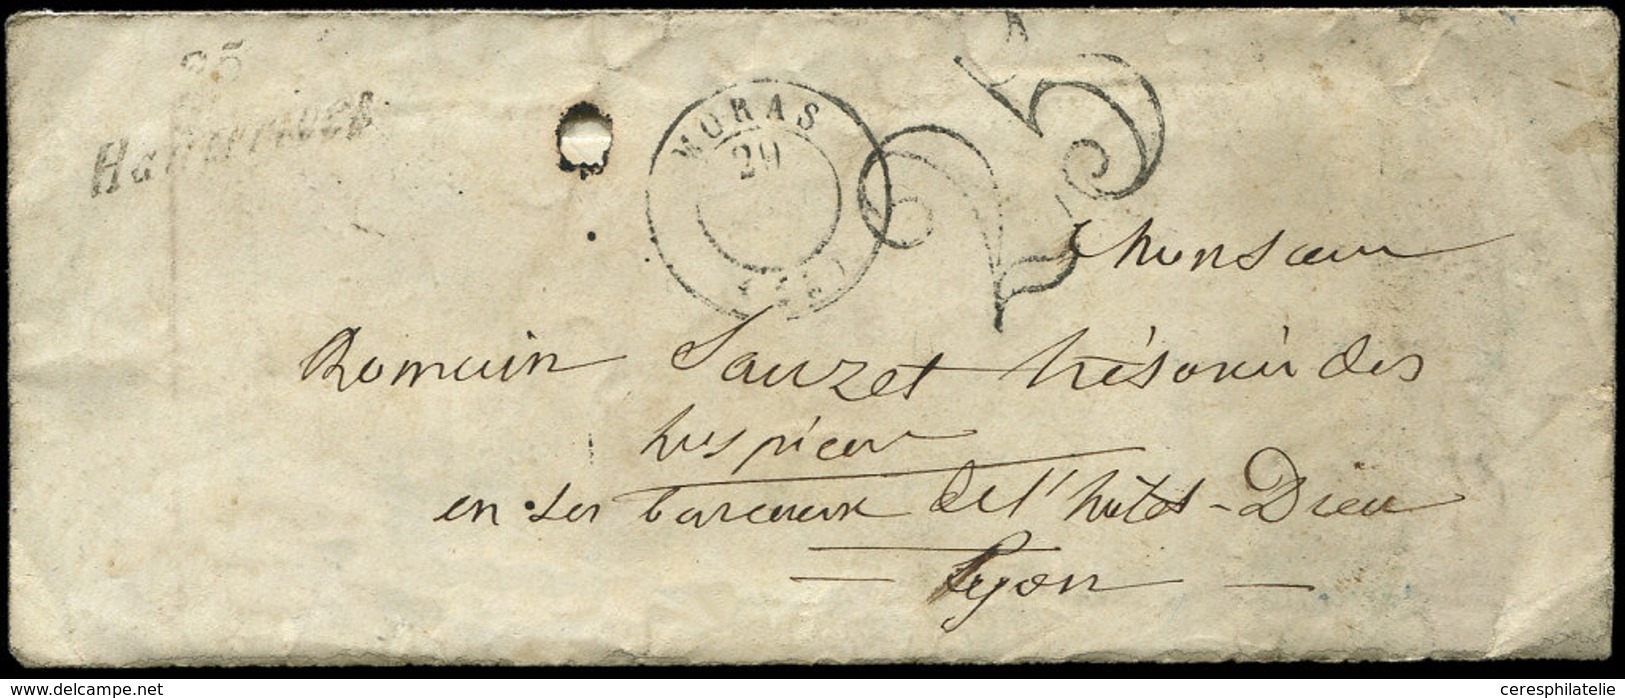 25
Hauterives
MORAS
20
(25)
25
Monsieur
Romain Sauzet trésorier des
hospices
en ses bureaux de l'hôtel-Dieu
Lyon
delcampe.net
ceresphilatelie